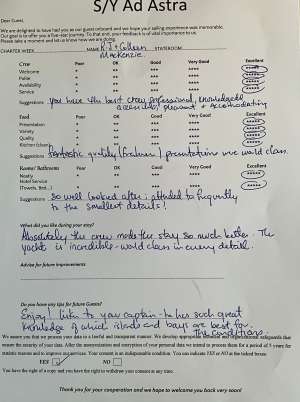 S/Y Ad Astra
Dear Guest,
We are delighted to have had you as our guest onboard and we hope your sailing experience was memorable.
Our goal is to offer you a five-star journey. To that end, your feedback is of vital importance to us.
Please take a moment and let us know how we are doing.
CHARTER WEEK NAME K.J + Colleen STATEROOM
Mackenzie
Crew Poor OK Good Very Good Excellent
Welcome * ** *** **** *****
Polite * ** *** **** *****
Availability * ** *** **** *****
Service * ** *** **** *****
Suggestions You have the best crew professional, knowledgeable
pleasant + accommodating
Food Poor OK Good Very Good Excellent
Presentation * ** *** **** *****
Variety * ** *** **** *****
Quality * ** *** **** *****
Kitchen * ** *** **** *****
Suggestions Fantastic presentation une world class.
Rooms/ Bathrooms Poor OK Good Very Good Excellent
Neatly * ** *** **** *****
Hotel Service * ** *** **** *****
(Towels, Bed...)
Suggestions So well looked after; attended to frequently
to the smallest details!
What did you like during your stay?
Absolutely the crew made the stay so much better. The
yacht is incredible - world class in every detail.
Advise for future improvements
Do you have any tips for future Guests?
Enjoy! Listen to your captain - he has such great
knowledge of which islands and bays are best for
the conditions.
We assure you that we process your data in a lawful and transparent manner. We develop appropriate technical and organizational safeguards that
ensure the security of your data. After the anonymization and encryption of your personal data we intend to process them for a period of 5 years for
statistic reasons and to improve our services. Your consent is indispensable condition. You can indicate YES or NO at the below boxes.
YES NO
You have the right of a copy and you have the right to withdraw your consent at any time.
Thank you for your cooperation and we hope to welcome you back very soon!